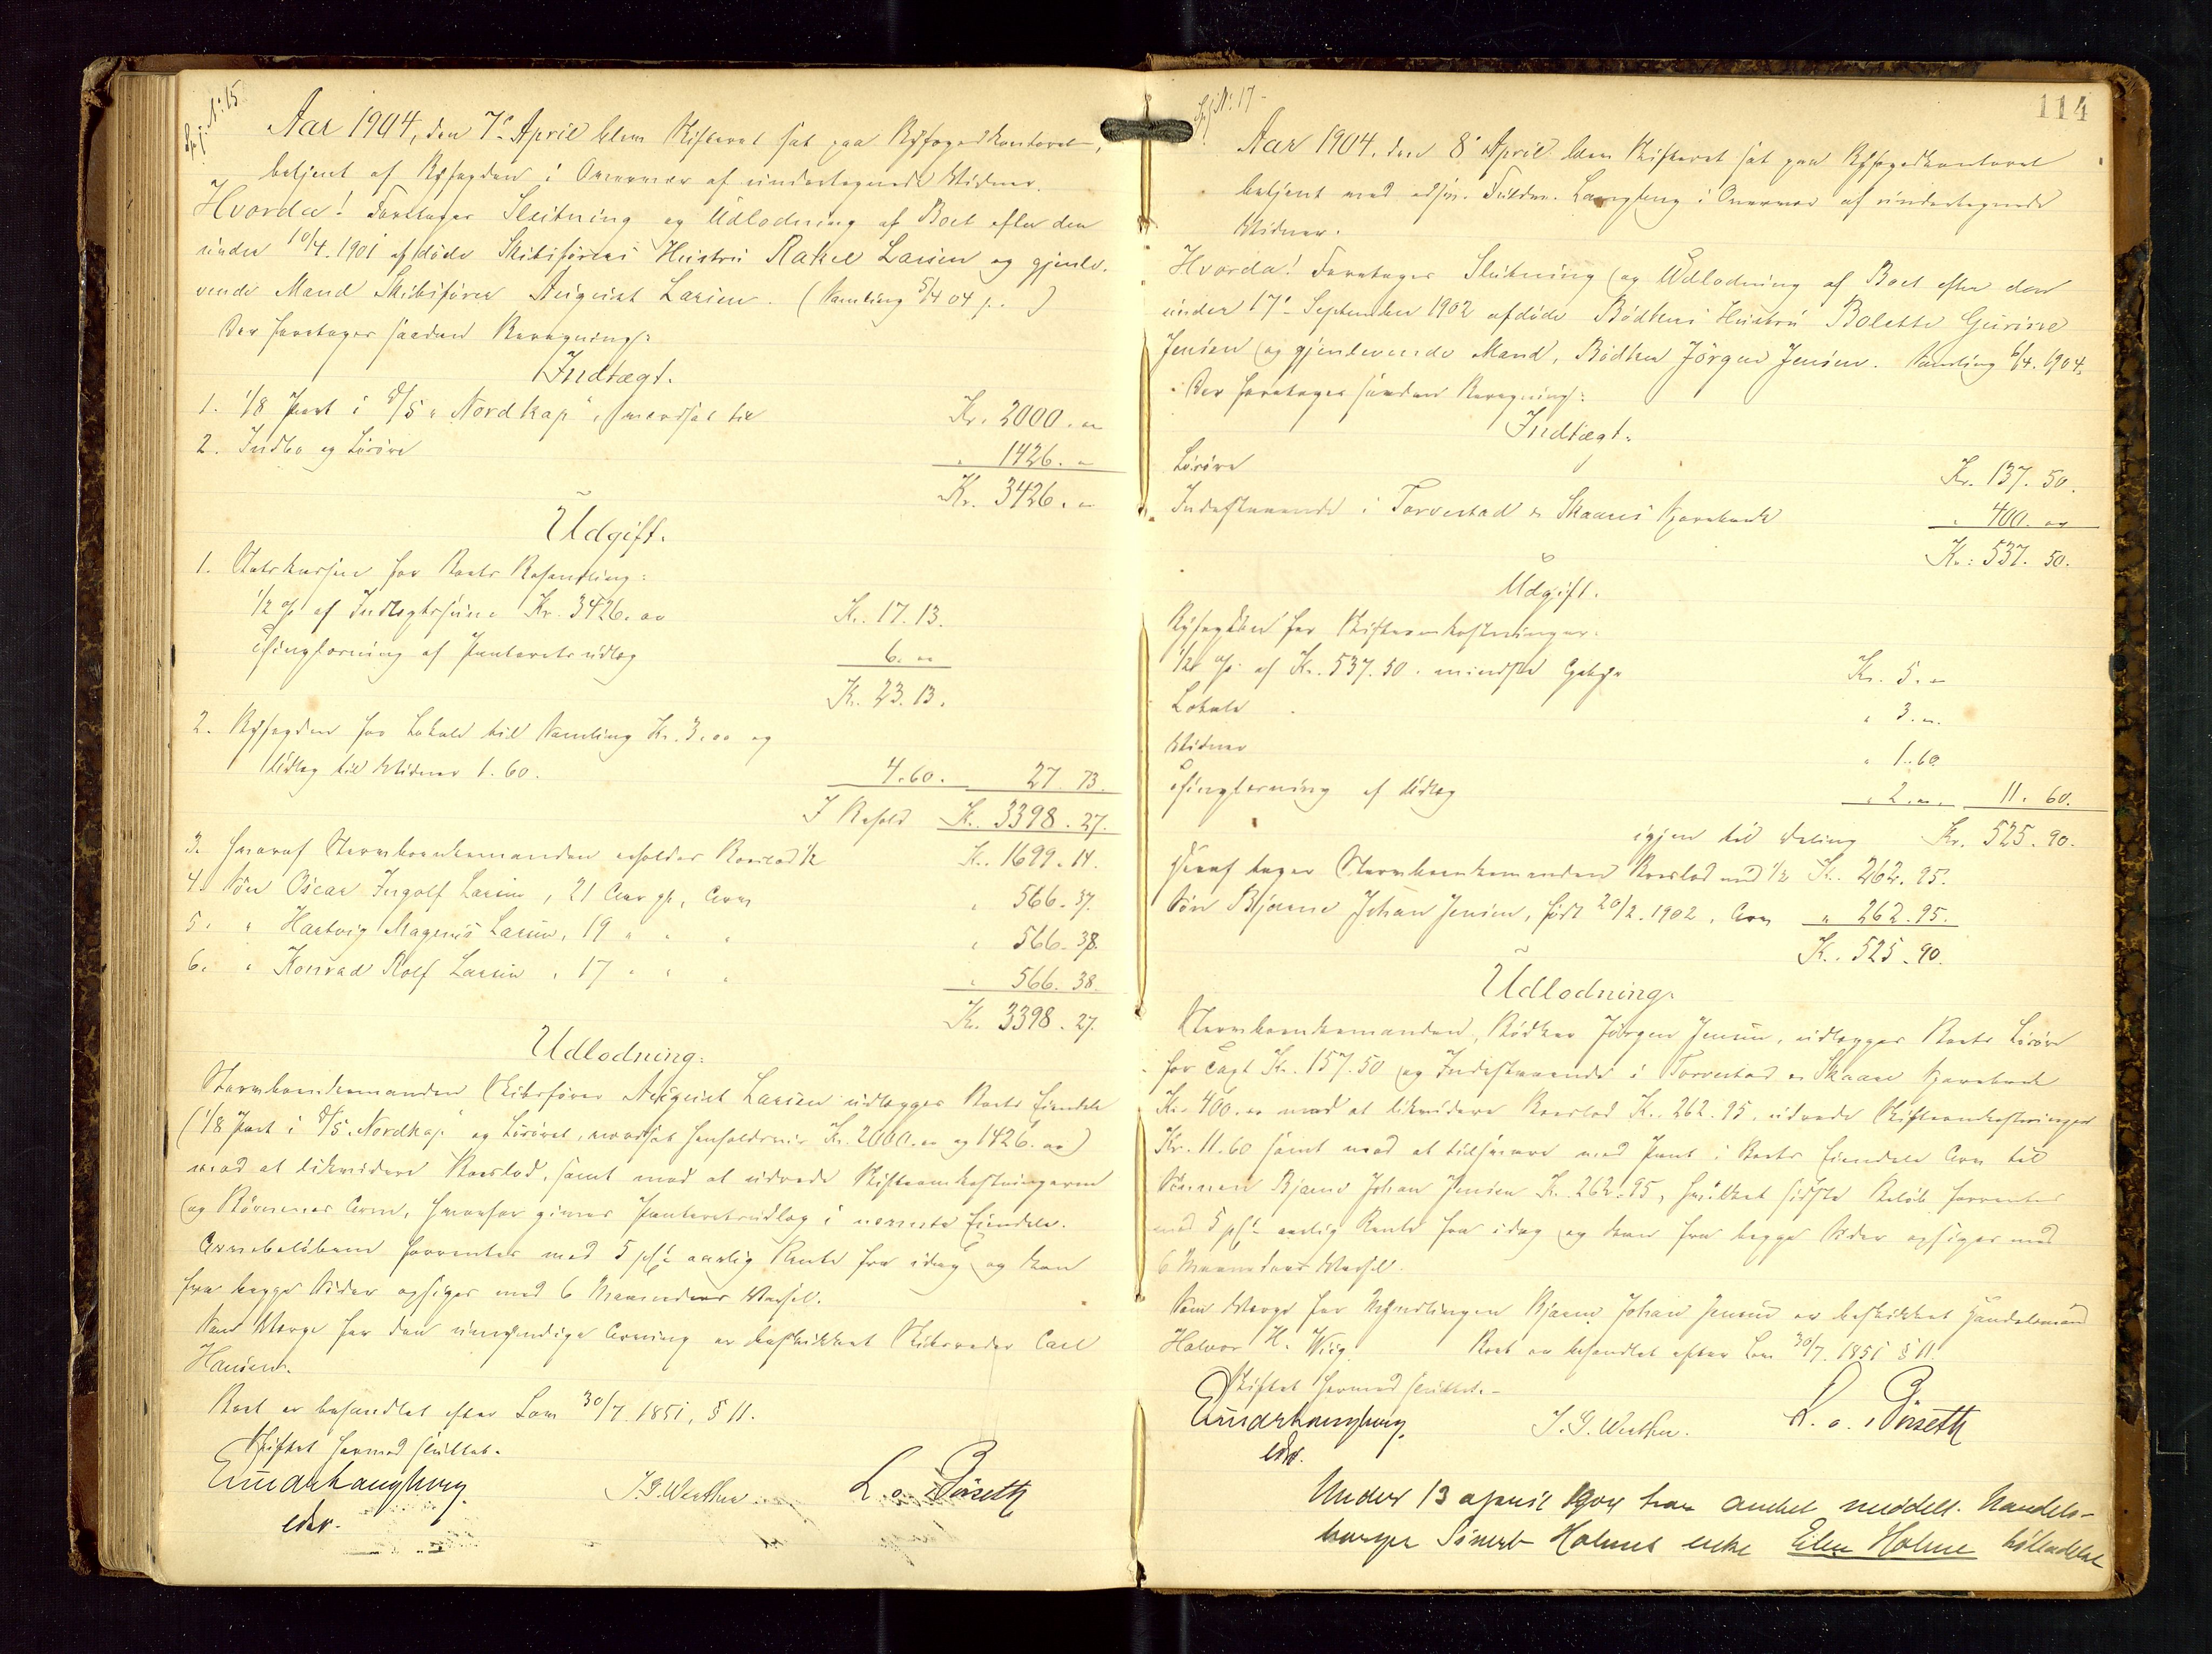 Spj. No. 15
Aar 1904, den 7' April blev Skifteret sat paa Byfogedkontoret,
betjent af Byfogden i Overvær af undertegnede Vidner.
Hvorda! Foretages Slutning og Udlodning af Boet efter den
under 10/4. 1901 afdøde Skibsførers Hustru Rakel Larsen og gjenle-
vende Mand Skibsfører August Larsen. (Samling 5/4 04 )
Der foretages saadan Beregning:
Indtægt.
1. 1/8 Part i D/S "Nordkap", værdsat til Kr. 2000. "
2. Indbo og Løsøre " 1426. "
Kr. 3426. "
Udgift.
1. Statskassen for Boets Behandling:
1/2 % af Indtægtssum Kr. 3426.00 Kr. 17.13.
Thinglæsning af Panteretsudlæg 6. 00
Kr. 23.13.
2. Byfogden for Lokale til Samling Kr. 3.00 og
Udlæg til Vidner 1.60. 4.60. 27.73.
I Behold Kr. 3398.27.
3. Hvoraf Stervboenkemanden erholder Boeslod 1/2 Kr. 1699.14.
4. Søn Oscar Ingolf Larsen, 21 Aar gl., Arv " 566.37.
5. " Hartvig Magnus Larsen, 19 " " " " 566.38.
6. " Konrad Rolf Larsen, 17 " " " " 566.38.
Kr. 3398.27.
Udlodning:
Stervboenkemanden Skibsfører August Larsen udlægges Boets Eiendele
(1/8 Part i D/S "Nordkap" og Løsøret, værdsat henholdsvis Kr. 2000.00 og 1426.00)
mod at likvidere Boeslod, samt mod at udrede Skifteomkostningerne
og Børnenes Arv, hvorfor gives Panteretsudlæg i nævnte Eiendele.
Arvebeløbene forrentes med 5 pCt aarlig Rente fra idag og kan
fra begge Sider opsiges med 6 Maaneders Varsel.
Som Værge for den umyndige Arving er beskikket Skibsreder Carl
Hansen.
Boet er behandlet efter Lov 30/7 1851, § 11.
Skiftet hermed sluttet.
Einar Langberg J. G. Werther L. o. Børseth
edsv.
114
Spj No. 17
Aar 1904. den 8' April blev Skifteret sat paa Byfogedkontoret
betjent ved edsv. Fuldm. Langberg i Overvær af undertegnede
Vidner.
Hvorda! Foretages Slutning og Udlodning af Boet efter den
under 17' September 1902 afdøde Bødkers Hustru Bolette Gurine
Jensen og gjenlevende Mand, Bødker Jørgen Jensen. Samling 6/4. 1904.
Der foretages saadan Beregning:
Indtægt:
Løsøre Kr. 137.50.
Indestaaende i Torvestad & Skaares Sparebank " 400. 00
Kr. 537.50.
Udgift.
Byfogden for Skifteomkostninger:
1/2 % af Kr. 537.50. mindste Gebyr Kr. 5. "
Lokale " 3. "
Vidner " 1.60
Thinglæsning af Udlæg " 2. " 11.60.
igjen til Deling Kr. 525.90.
Heraf tager Stervboenkemanden Boeslod med 1/2 Kr. 262.95.
Søn Bjarne Johan Jensen, født 20/2. 1902, Arv " 262.95.
Kr. 525.90.
Udlodning:
Stervboenkemanden, Bødker Jørgen Jensen, udlægges Boets Løsøre
for Taxt Kr. 157.50 og Indestaaende i Torvestad & Skaare Sparebank
Kr. 400.00 mod at likvidere Boeslod Kr. 262.95, udrede Skifteomkostninger
Kr. 11.60 samt mod at tilsvare med Pant i Boets Eiendele Arv til
Sønnen Bjarne Johan Jensen Kr. 262.95, hvilket sidste Beløb forrentes
med 5 pCt aarlig Rente fra idag og kan fra begge Sider opsiges med
6 Maaneders Varsel.
Som Værge for Myndlingen Bjarne Johan Jensen er beskikket Handelsmand
Halvor H. Wiig. Boet er behandlet efter Lov 30/7. 1851 § 11.
Skiftet hermed sluttet.-
Einar Langberg. J. G. Werther. L. o. Børseth
edsv.
Under 13 april 1904 har amtet meddelt Handels-
borger Sivert Holmes enke Elen Holme